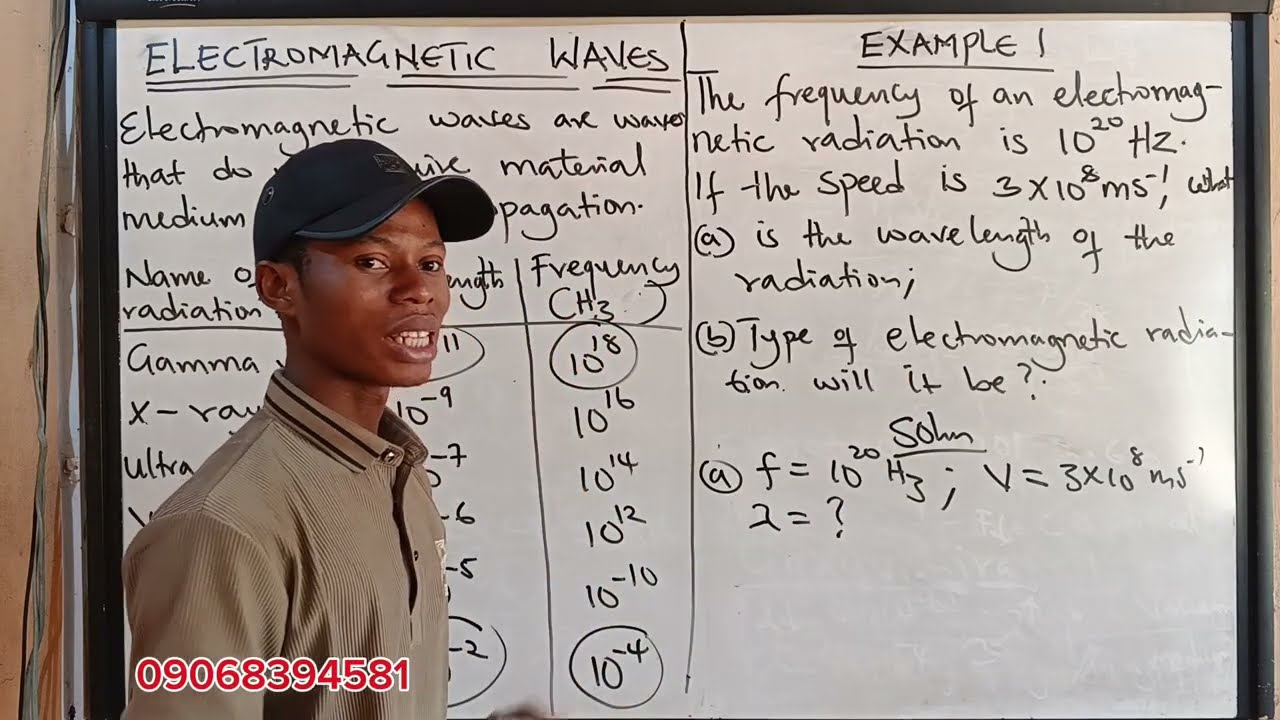 ELECTROMAGNETIC WAVES
Electromagnetic waves are waves
that do material
medium pagation.
Name o ength Frequency
radiation (Hz)
Gamma 11 10^18
X-ray 10^-9 10^16
Ultra -7 10^14
V -6 10^12
-5 10^-10
-2 10^-4
EXAMPLE 1
The frequency of an electromag-
netic radiation is 10^20 Hz.
If the speed is 3×10^8 ms^-1, what
(a) is the wavelength of the
radiation;
(b) Type of electromagnetic radia-
tion. will it be?.
Soln
(a) f = 10^20 Hz ; V = 3×10^8 ms^-1
λ = ?
09068394581